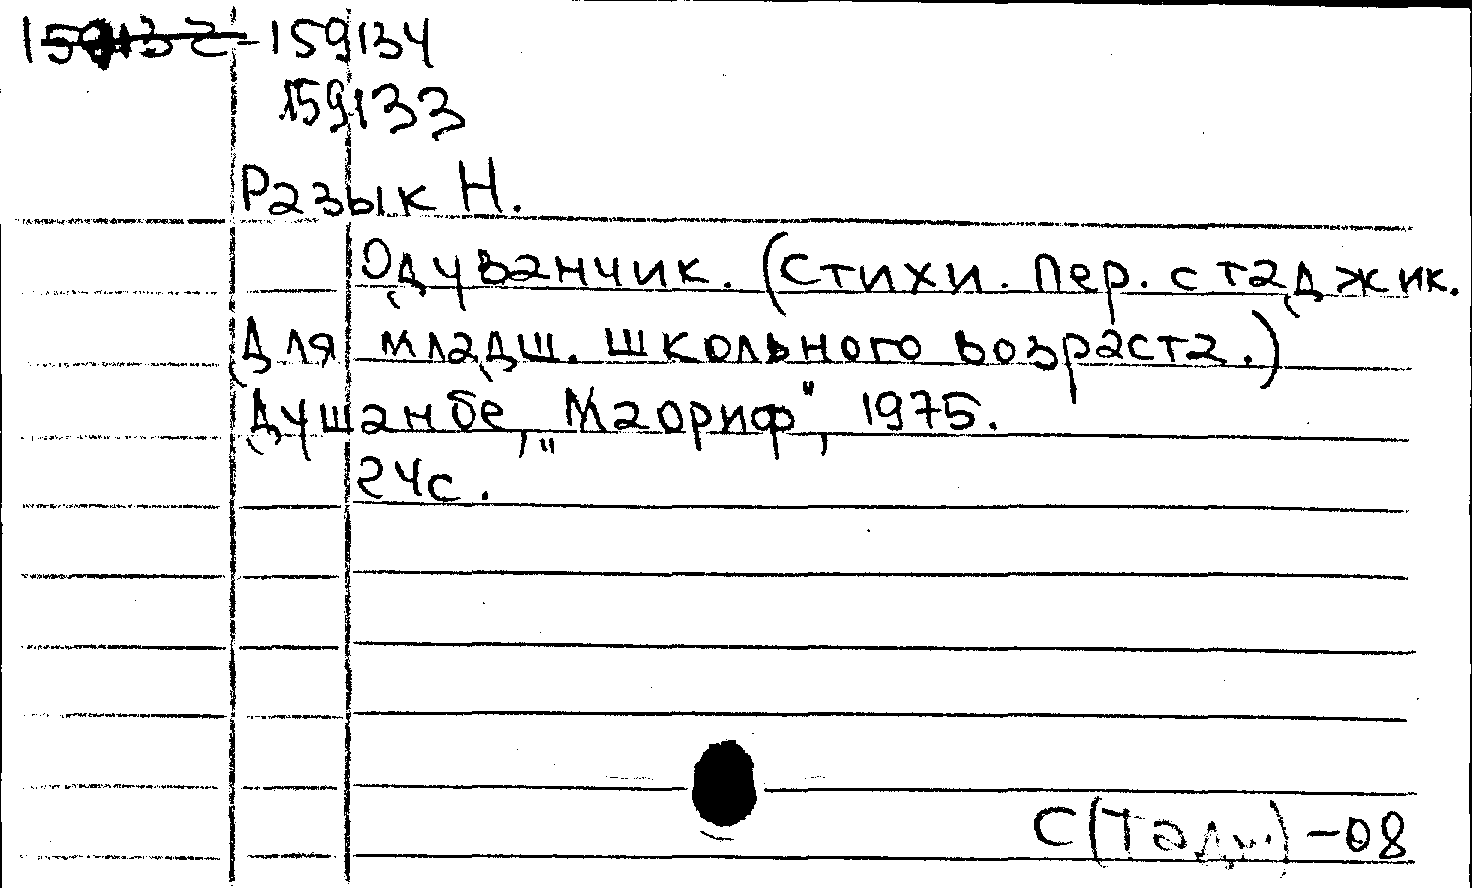 159132-159134
159133
Разык Н.
Одуванчик. (Стихи. Пер. с таджик.
Для младш. школьного возраста.)
Душанбе, „Маориф", 1975.
24с.
С(Тадж.)-08